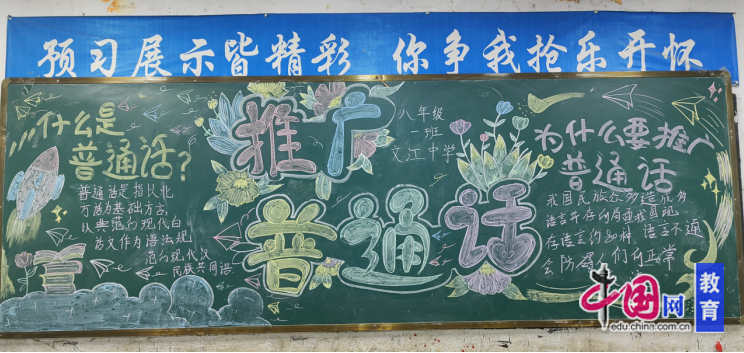 预习展示皆精彩 你争我抢乐开怀
什么是
普通话?
普通话是指以北
方话为基础方言，
以典范的现代白
话文作为语法规
范的现代汉
民族共同语
推广
普通话
八年级
一班
文江中学
为什么要推广
普通话
我国民族众多造成多
语言并存的局面我国现
存语言约80种，语言不通
会妨碍人们的正常
中国网
edu.china.com.cn
教育